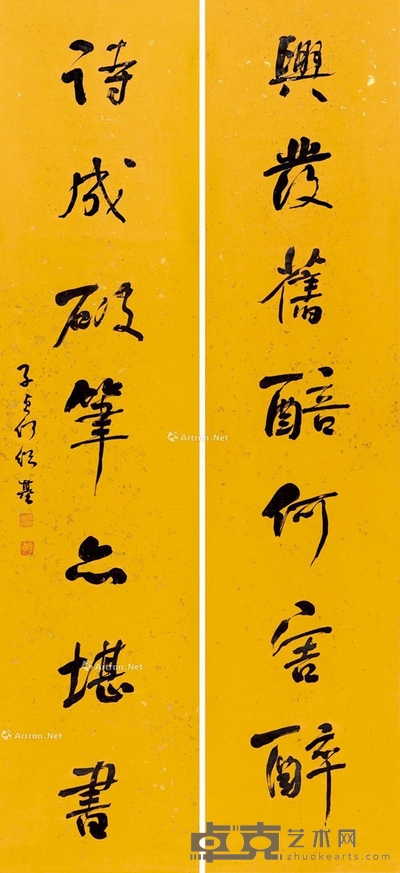 興發舊醅何害醉
詩成破筆亦堪書
子貞何紹基
Artron.Net
Artron.Net
Artron.Net
Artron.Net
Artron.Net
卓克艺术网
zhuokearts.com